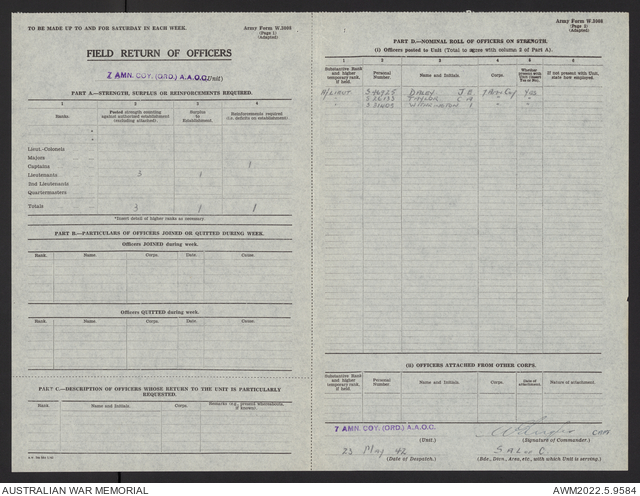 TO BE MADE UP TO AND FOR SATURDAY IN EACH WEEK.
Army Form W.3008
(Page 1)
(Adapted)
FIELD RETURN OF OFFICERS
7 AMN. COY. (ORD.) A.A.O.C. (Unit)
PART A.—STRENGTH, SURPLUS OR REINFORCEMENTS REQUIRED.
1 2 3 4
Ranks. Posted strength counting against authorised establishment (excluding attached). Surplus to Establishment. Reinforcements required (i.e. deficits on establishment).
Lieut.-Colonels
Majors
Captains 1
Lieutenants 3 1
2nd Lieutenants
Quartermasters
Totals 3 1 1
*Insert detail of higher ranks as necessary.
PART B.—PARTICULARS OF OFFICERS JOINED OR QUITTED DURING WEEK.
Officers JOINED during week.
Rank. Name. Corps. Date. Cause.
Officers QUITTED during week.
Rank. Name. Corps. Date. Cause.
PART C.—DESCRIPTION OF OFFICERS WHOSE RETURN TO THE UNIT IS PARTICULARLY REQUESTED.
Rank. Name and Initials. Corps. Remarks (e.g., present whereabouts, if known).
Army Form W.3008
(Page 2)
(Adapted)
PART D.—NOMINAL ROLL OF OFFICERS ON STRENGTH.
(i) Officers posted to Unit (Total to agree with column 2 of Part A).
1 2 3 4 5 6
Substantive Rank and higher temporary rank, if held. Personal Number. Name and Initials. Corps. Whether present with Unit (insert Yes or No). If not present with Unit, state how employed.
A/LIEUT J.B. 7 Amn Coy Yes
" TAYLOR " "
" "
(ii) OFFICERS ATTACHED FROM OTHER CORPS.
Substantive Rank and higher temporary rank, if held. Personal Number. Name and Initials. Corps. Date of attachment. Nature of attachment.
7 AMN. COY. (ORD.) A.A.O.C.
(Unit.) (Signature of Commander.)
23 May 42 S.A. L of C
(Date of Despatch.) (Bde., Davn., Area, etc., with which Unit is serving.)
AUSTRALIAN WAR MEMORIAL
AWM2022.5.9584